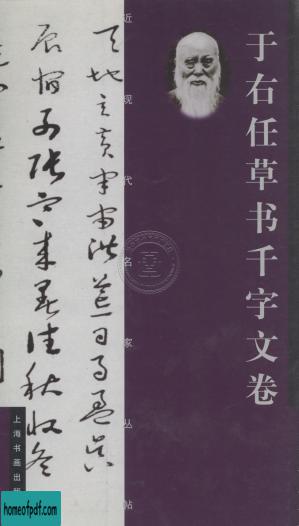 于右任草书千字文卷
近现代名家丛帖
天地玄黄宇宙洪荒日月盈昃
辰宿列张寒来暑往秋收冬
上海书画出版
homeofpdf.com